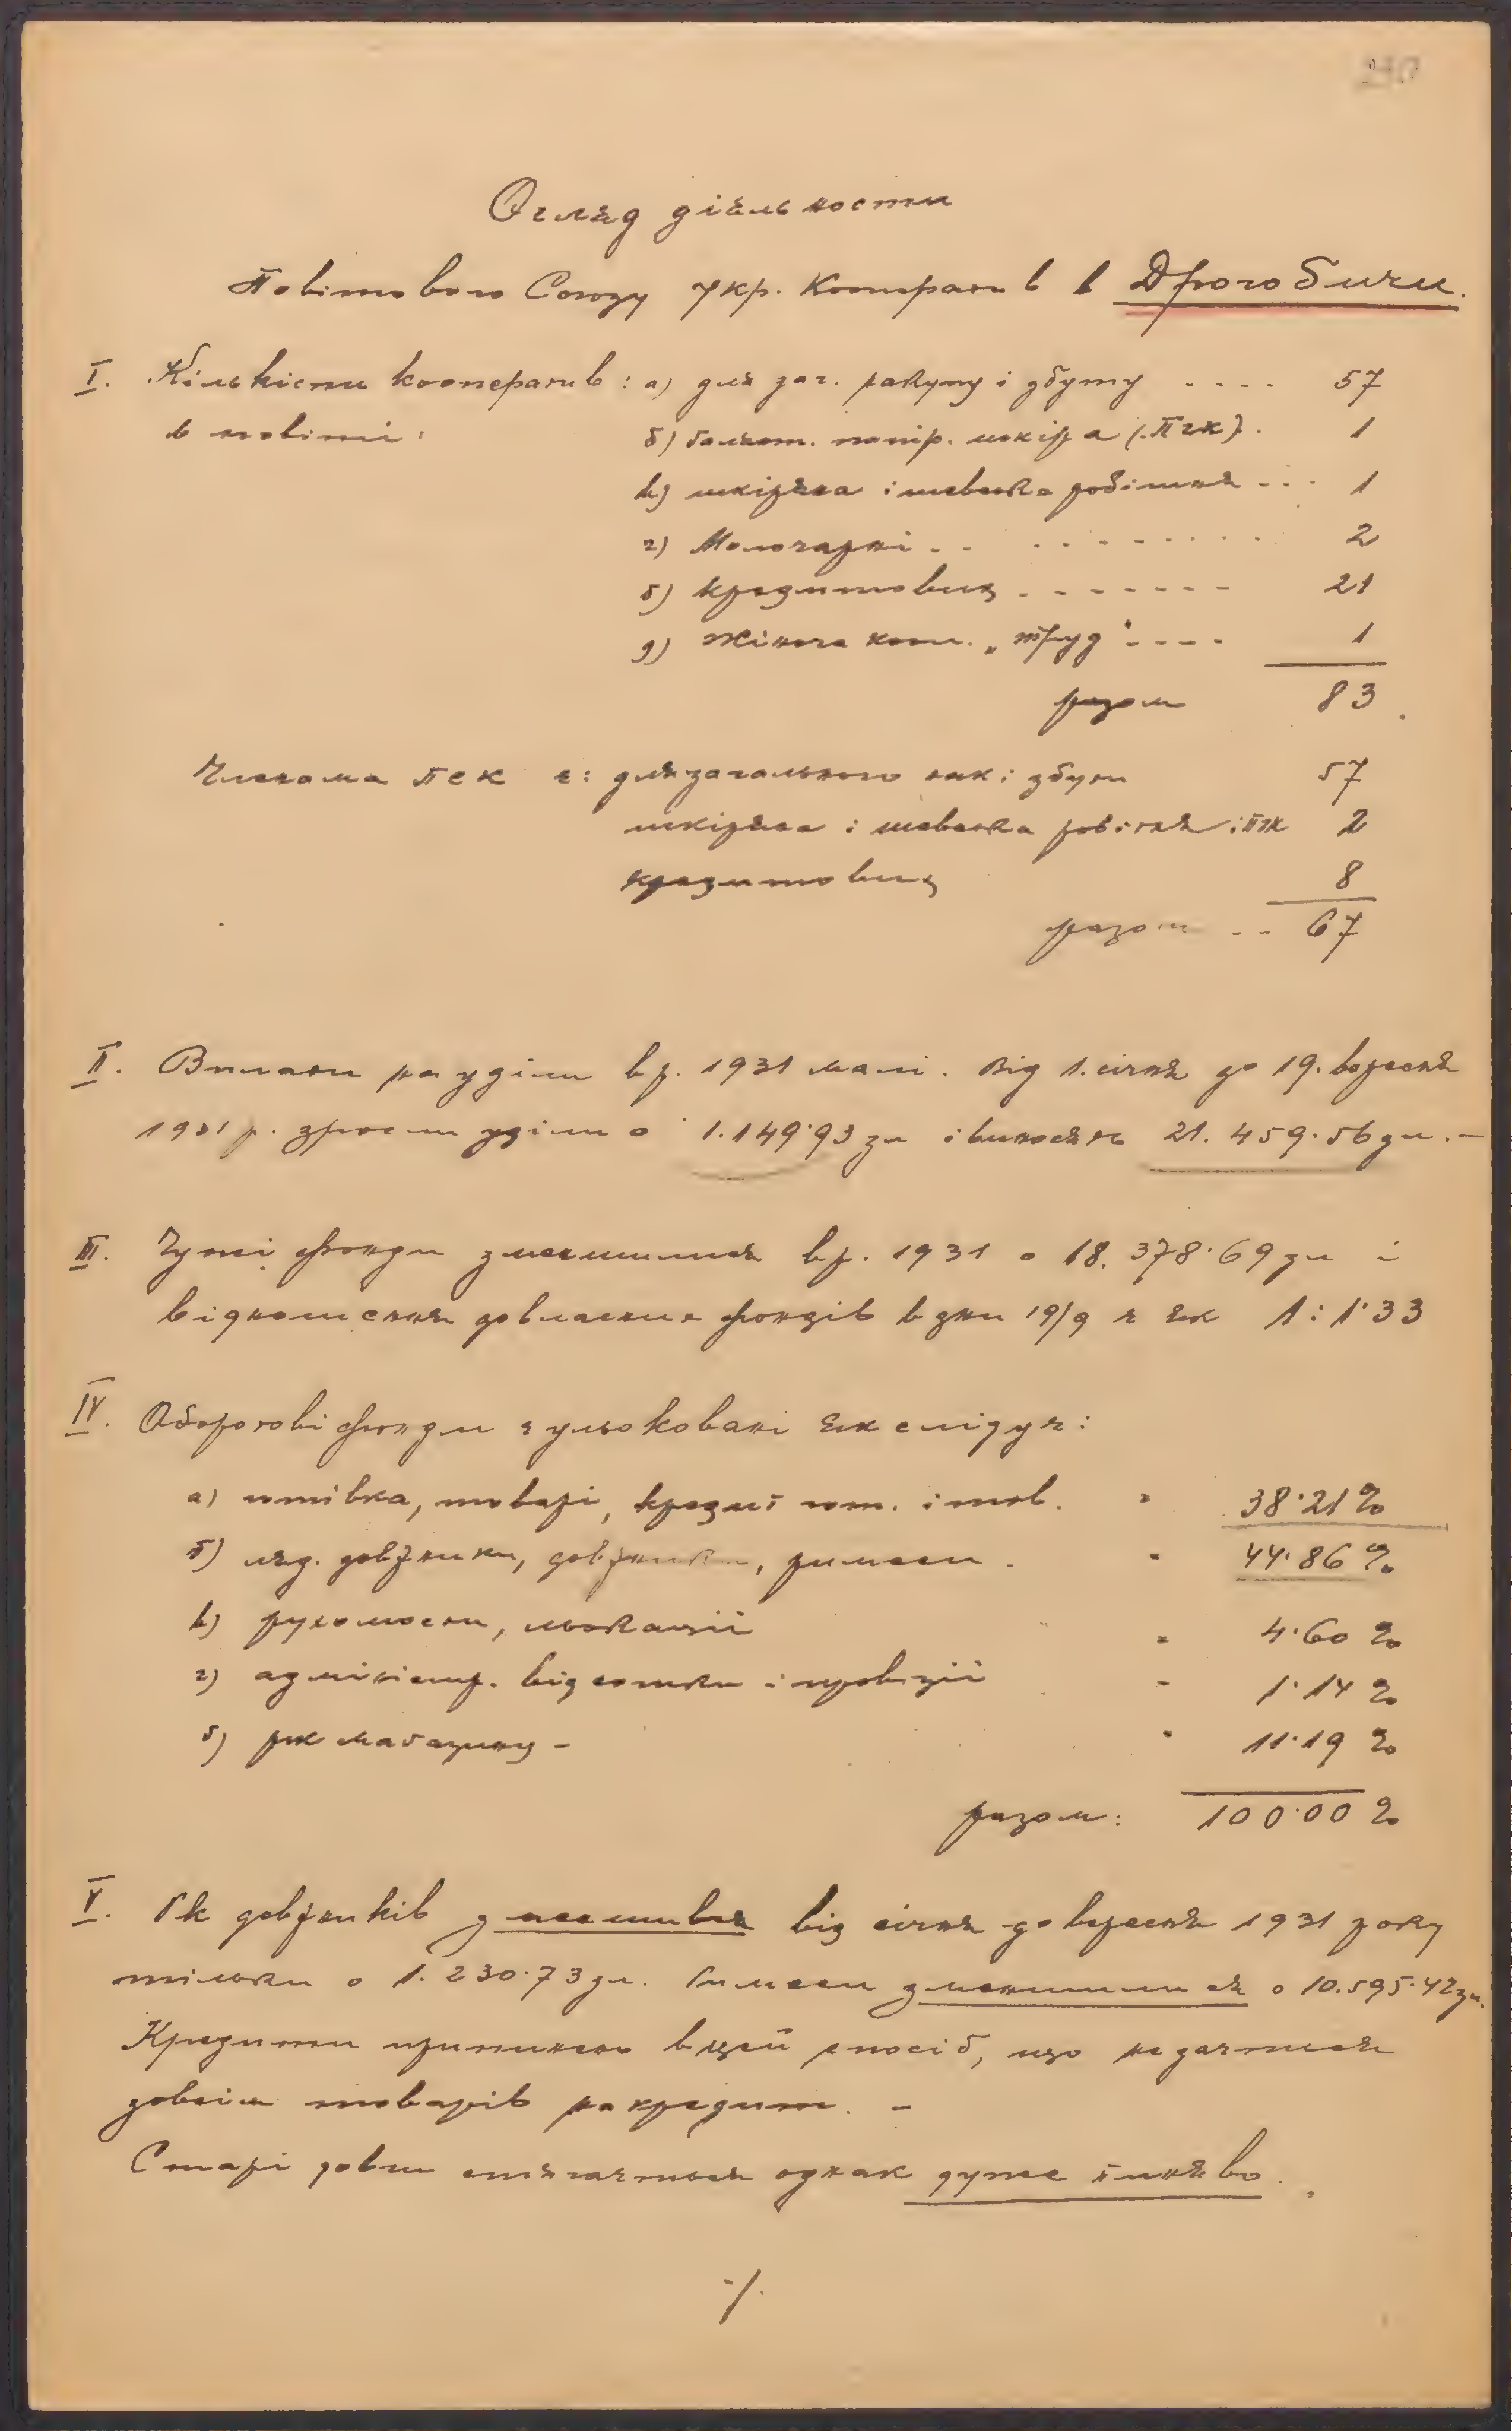 Огляд діяльности
Повітового Союзу Укр. Кооператив в Дрогобичи.
I. Кількість кооператив: а) для заг. закупу і збуту .... 57
в повіті: б) папір. шкіра (ПСК). 1
в) шкіряна і шевська робітня ... 1
г) Молочарні .. ........ 2
ґ) кредитових ....... 21
д) Жіноча кооп. „Труд" .... 1
разом 83.
Членами ПСК є: для загального зак. і збуту 57
шкіряна і шевська робітня і 2
кредитових 8
разом .. 67
II. Вплати на уділи в р. 1931 малі. Від 1. січня до 19. вересня
1931 р. зросли уділи о 1.149·93 зл і виносять 21.459·56 зл. —
III. Чужі фонди зменшилися в р. 1931 о 18.378·69 зл і
відношення до власних фондів в дни 19/9 є як 1:1·33
IV. Оборотові фонди є ульоковані як слідує:
а) готівка, товарі, кредит гот. і тов. " 38·21%
б) довжники, довжники, римеси . " 44·86%
в) рухомости, льокації " 4·60%
г) адміністр. відсотки і провізії " 1·14%
ґ) рк магазину - " 11·19%
разом: 100·00%
V. Рк довжників зменшився від січня до вересня 1931 року
тільки о 1.230·73 зл. Римеси зменшилися о 10.595·42 зл.
Кредити припинено в цей спосіб, що не дається
зовсім товарів на кредит. —
Старі довги стягається однак дуже пиняво.
·/.